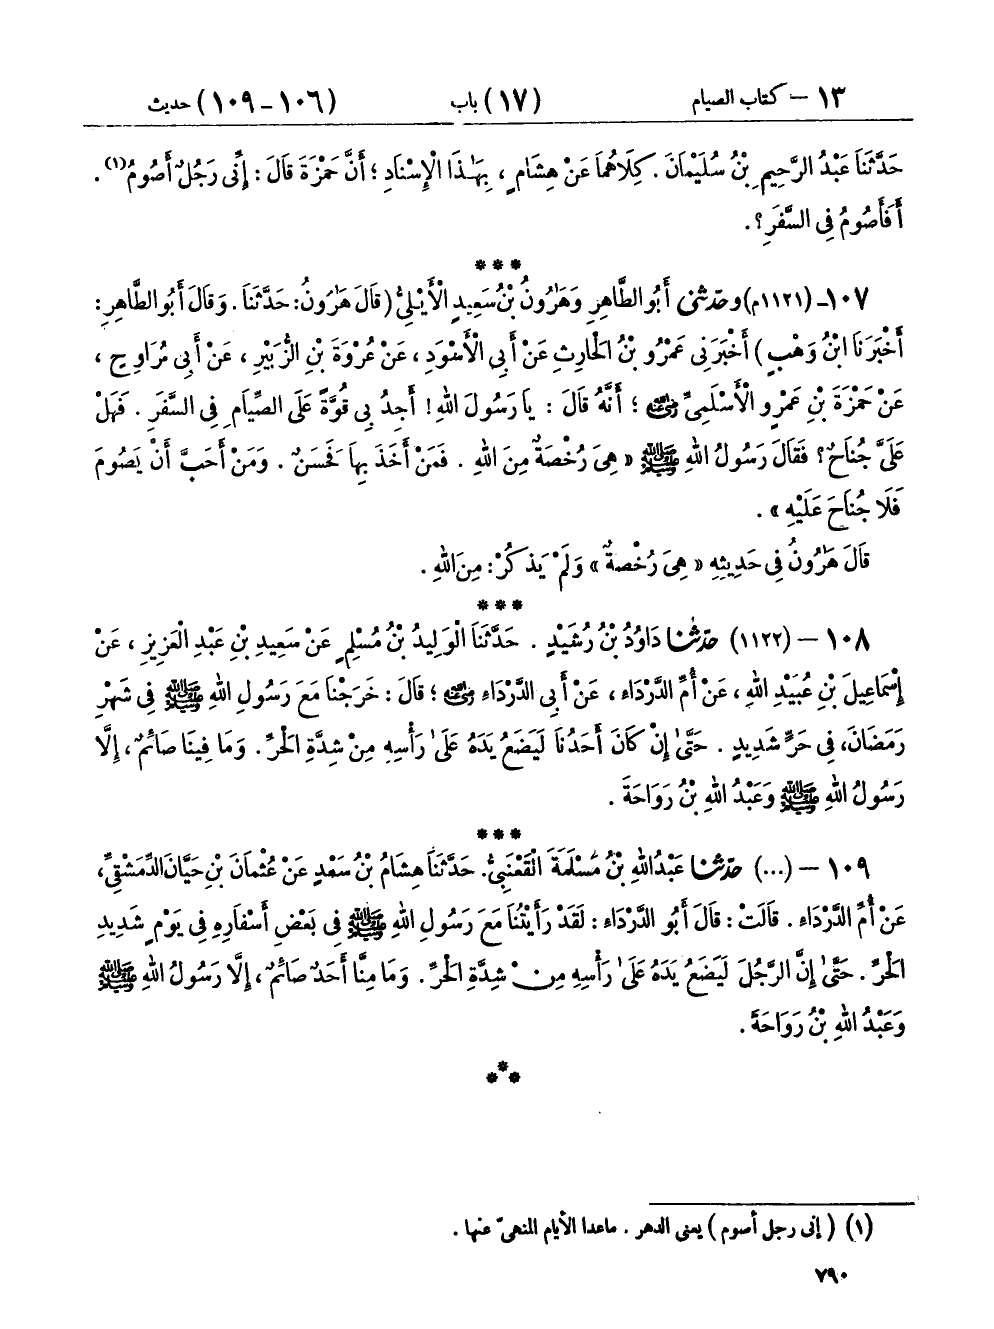 ١٣ – كتاب الصيام (١٧) باب (١٠٦ – ١٠٩) حديث
حَدَّثَنَا عَبْدُ الرَّحِيمِ بْنُ سُلَيْمَانَ . كِلَاهُمَا عَنْ هِشَامٍ ، بِهَٰذَا الْإِسْنَادِ ؛ أَنَّ حَمْزَةَ قَالَ : إِنِّى رَجُلٌ أَصُومُ(١) .
أَفَأَصُومُ فِى السَّفَرِ ؟ .
***
١٠٧ـ (١١٢١م) وحدّثنى أَبُو الطَّاهِرِ وَهَٰرُونُ بْنُ سَعِيدٍ الْأَيْلِيُّ ( قَالَ هَٰرُونُ: حَدَّثَنَا . وَقَالَ أَبُو الطَّاهِرِ :
أَخْبَرَنَا ابْنُ وَهْبٍ ) أَخْبَرَنِى عَمْرُو بْنُ الْحَارِثِ عَنْ أَبِى الْأَسْوَدِ ، عَنْ عُرْوَةَ بْنِ الزُّبَيْرِ ، عَنْ أَبِى مُرَاوِحٍ ،
عَنْ حَمْزَةَ بْنِ عَمْرٍو الْأَسْلَمِيِّ رضي الله عنه ؛ أَنَّهُ قَالَ : يَا رَسُولَ اللهِ ! أَجِدُ بِى قُوَّةً عَلَى الصِّيَامِ فِى السَّفَرِ . فَهَلْ
عَلَيَّ جُنَاحٌ ؟ فَقَالَ رَسُولُ اللهِ ﷺ « هِىَ رُخْصَةٌ مِنَ اللهِ . فَمَنْ أَخَذَ بِهَا فَحَسَنٌ . وَمَنْ أَحَبَّ أَنْ يَصُومَ
فَلَا جُنَاحَ عَلَيْهِ » .
قَالَ هَٰرُونُ فِى حَدِيثِهِ « هِىَ رُخْصَةٌ » وَلَمْ يَذْكُرْ : مِنَ اللهِ .
***
١٠٨ – (١١٢٢) حدّثنا دَاوُدُ بْنُ رُشَيْدٍ . حَدَّثَنَا الْوَلِيدُ بْنُ مُسْلِمٍ عَنْ سَعِيدِ بْنِ عَبْدِ الْعَزِيزِ ، عَنْ
إِسْمَاعِيلَ بْنِ عُبَيْدِ اللهِ ، عَنْ أُمِّ الدَّرْدَاءِ ، عَنْ أَبِى الدَّرْدَاءِ رضي الله عنه ؛ قَالَ : خَرَجْنَا مَعَ رَسُولِ اللهِ ﷺ فِى شَهْرِ
رَمَضَانَ، فِى حَرٍّ شَدِيدٍ . حَتَّىٰ إِنْ كَانَ أَحَدُنَا لَيَضَعُ يَدَهُ عَلَىٰ رَأْسِهِ مِنْ شِدَّةِ الْحَرِّ . وَمَا فِينَا صَائِمٌ ، إِلَّا
رَسُولُ اللهِ ﷺ وَعَبْدُ اللهِ بْنُ رَوَاحَةَ .
***
١٠٩ – (...) حدّثنا عَبْدُ اللهِ بْنُ مَسْلَمَةَ الْقَعْنَبِيُّ. حَدَّثَنَا هِشَامُ بْنُ سَعْدٍ عَنْ عُثْمَانَ بْنِ حَيَّانَ الدِّمَشْقِيِّ،
عَنْ أُمِّ الدَّرْدَاءِ . قَالَتْ : قَالَ أَبُو الدَّرْدَاءِ : لَقَدْ رَأَيْتُنَا مَعَ رَسُولِ اللهِ ﷺ فِى بَعْضِ أَسْفَارِهِ فِى يَوْمٍ شَدِيدِ
الْحَرِّ . حَتَّىٰ إِنَّ الرَّجُلَ لَيَضَعُ يَدَهُ عَلَىٰ رَأْسِهِ مِنْ شِدَّةِ الْحَرِّ . وَمَا مِنَّا أَحَدٌ صَائِمٌ ، إِلَّا رَسُولُ اللهِ ﷺ
وَعَبْدُ اللهِ بْنُ رَوَاحَةَ .
***
(١) ( إنى رجل أصوم ) يعنى الدهر . ماعدا الأيام المنهىّ عنها .
٧٩٠